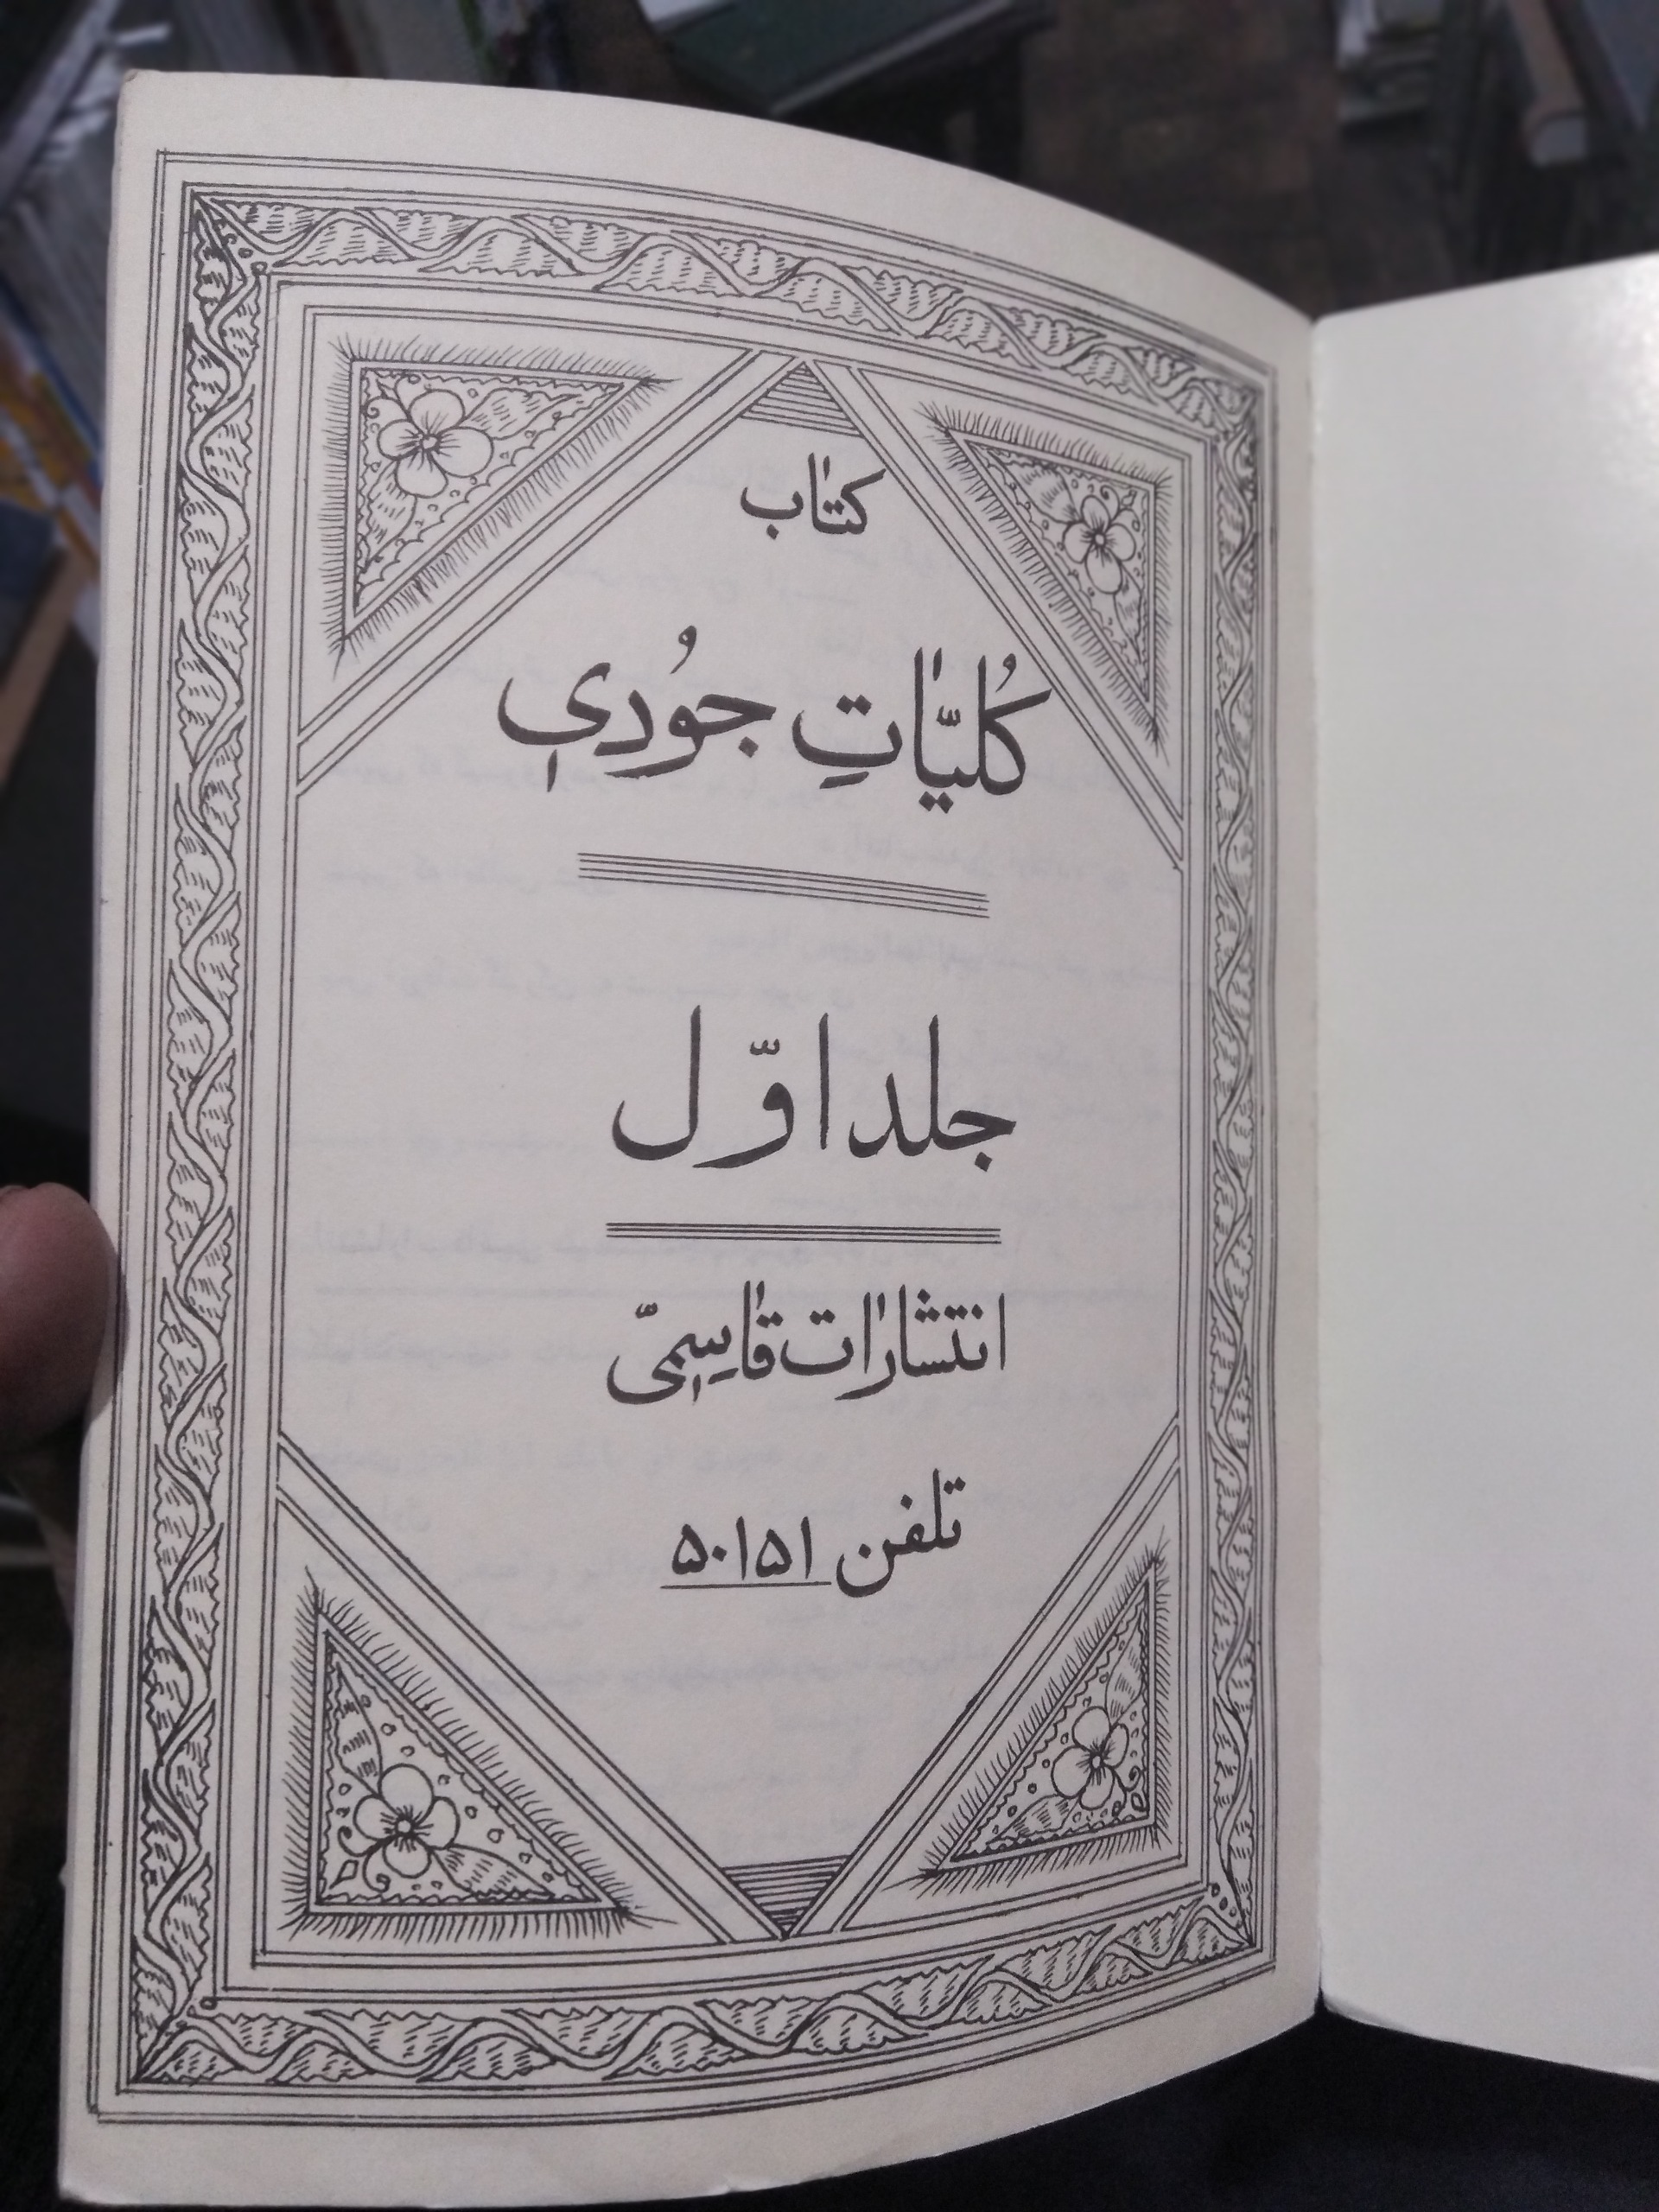 کتاب
کُلیّاتِ جُودی
جلد اوّل
انتشارات قاسِمی
تلفن ۵۰۱۵۱